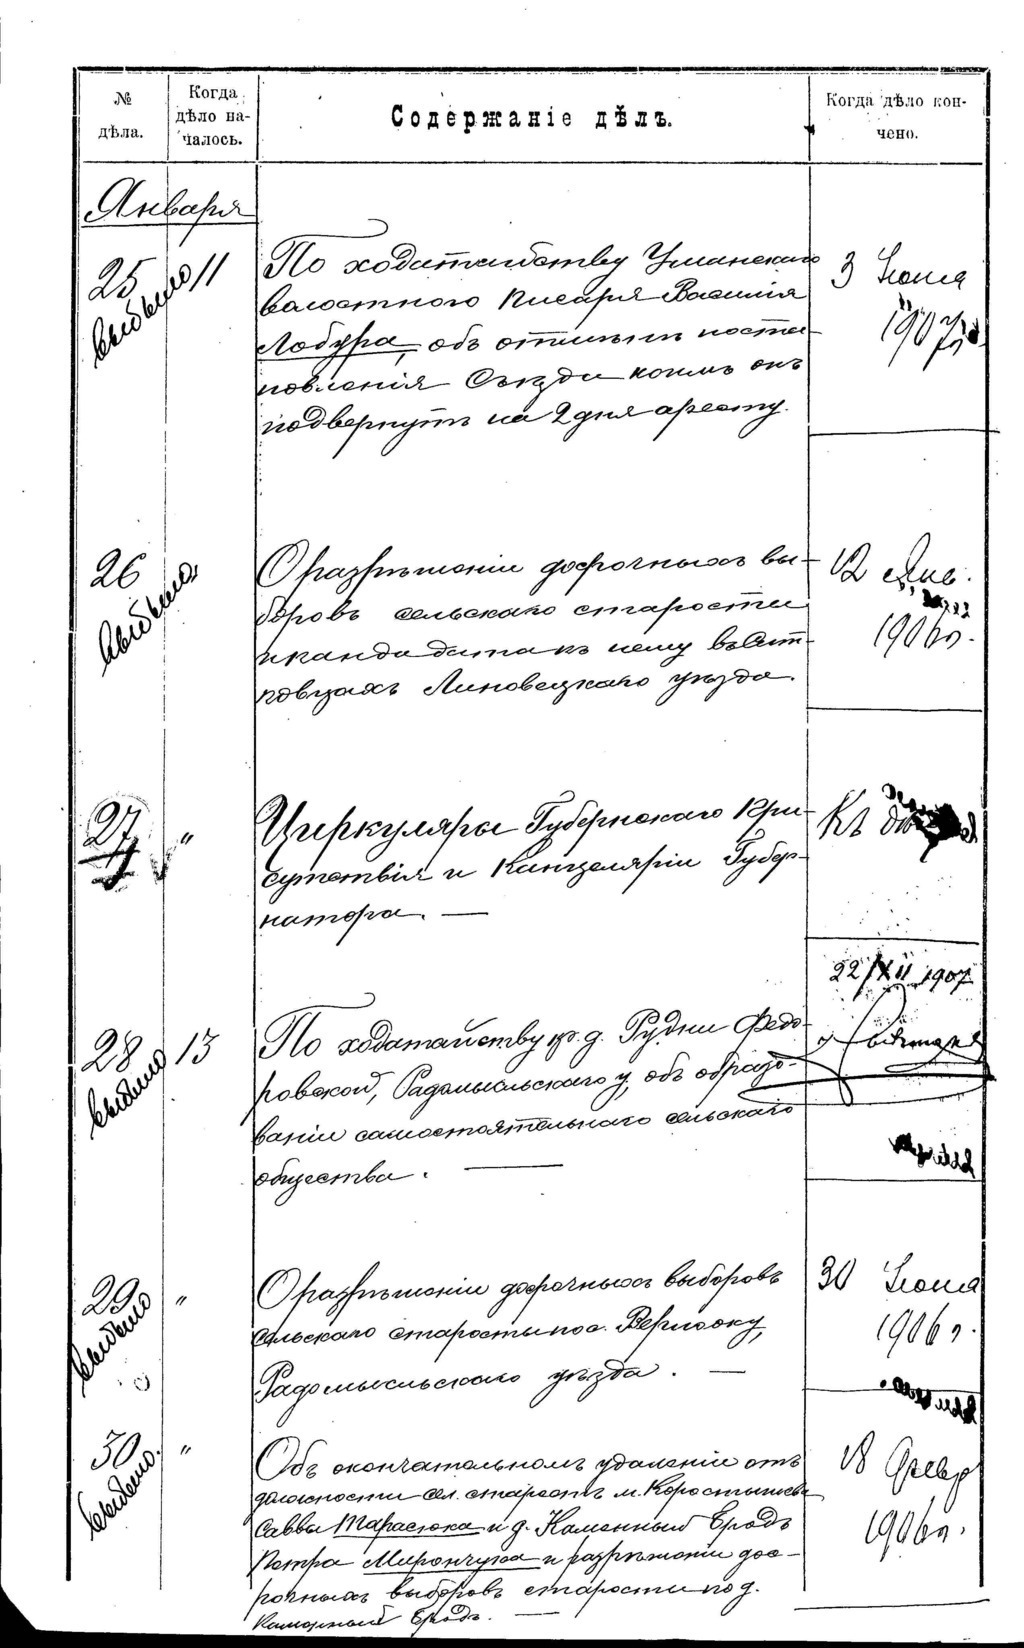 № дѣла.
Когда дѣло началось.
Содержаніе дѣлъ.
Когда дѣло кончено.
Января
25 выбыло 11
По ходатайству Уманскаго
волостного писаря Василія
Лобура, объ отмѣнѣ поста-
новленія Съѣзда коимъ онъ
подвергнутъ на 2 дня аресту.
3 Іюня
1907 г.
26 выбыло
О разрѣшеніи досрочныхъ вы-
боровъ сельскаго старосты
и кандидата къ нему въ
Липовецкаго уѣзда.
12 Янв.
1906 г.
27 "
Циркуляры Губернскаго При-
сутствія и Канцеляріи Губер-
натора. —
Къ
28 выбыло 13
По ходатайству кр. д. Рудни Федо-
ровской, Радомысльскаго у, объ образо-
ваніи самостоятельнаго сельскаго
общества. —
22/XII 1907
29 выбыло "
О разрѣшеніи досрочныхъ выборовъ
сельскаго старосты по с.
Радомысльскаго уѣзда. —
30 Іюня
1906 г.
30 выбыло. "
Объ окончательномъ удаленіи отъ
должности сел. старостъ м. Коростышева
Саввы Тарасюка и д. Каменный Бродъ
Петра Мирончука и разрѣшеніи дос-
рочныхъ выборовъ старосты по д.
Каменный Бродъ. —
18 Февр
1906 г.